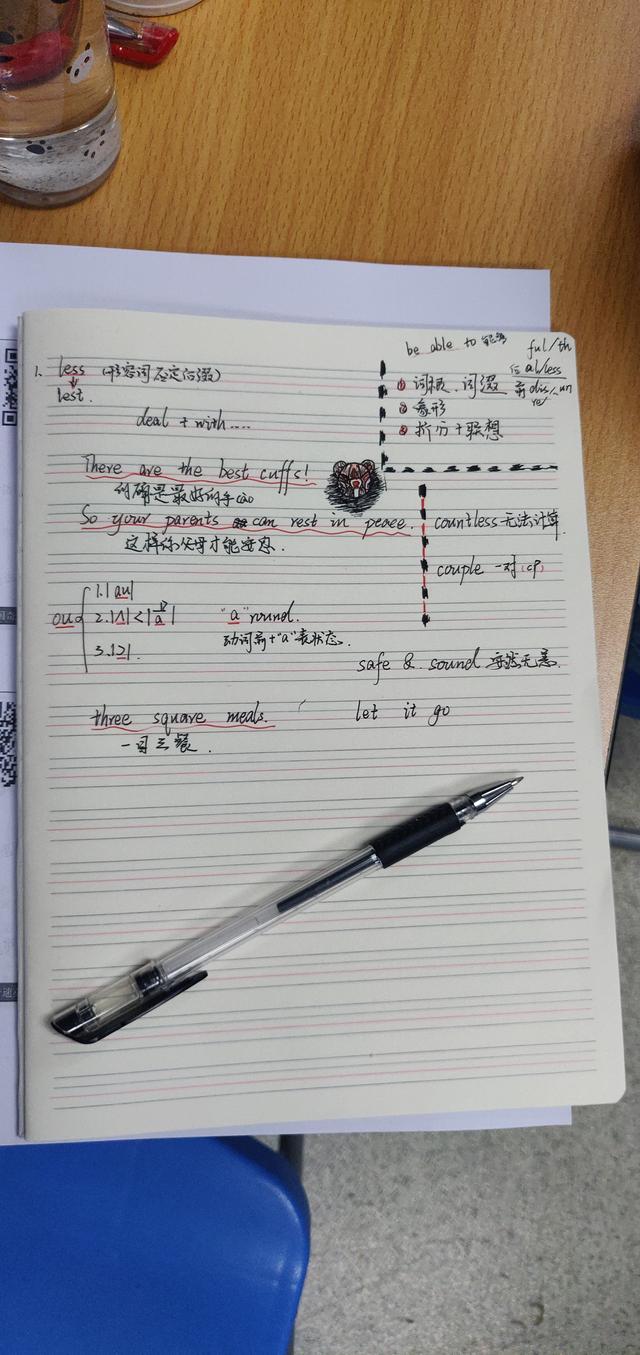 be able to 能够
ful/th
后 al/less
前 dis/un
re/
1. less (形容词否定后缀)
lest.
① 词根、词缀
② 象形
③ 拆分+联想
deal + with....
There are the best cuffs!
的确是最好的手
So your parents can rest in peace.
这样你父母才能安息.
countless 无法计算.
couple 一对(cp)
ou
1.|au|
2.|Λ| < |a|
3.|ɔ|.
"a" round.
动词前+"a"表状态.
safe & sound 安然无恙.
three square meals.
一日三餐.
let it go